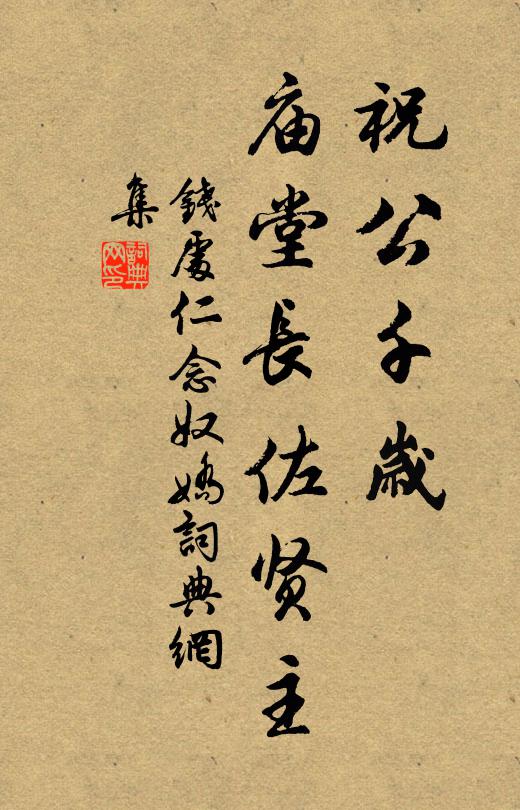 祝公千歲
庙堂長佐贤主
錢處仁念奴嬌詞典網
集
詞典
网印